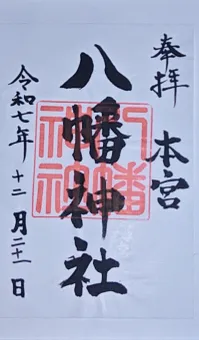 奉拝 本宮
八幡神社
令和七年 十二月二十一日